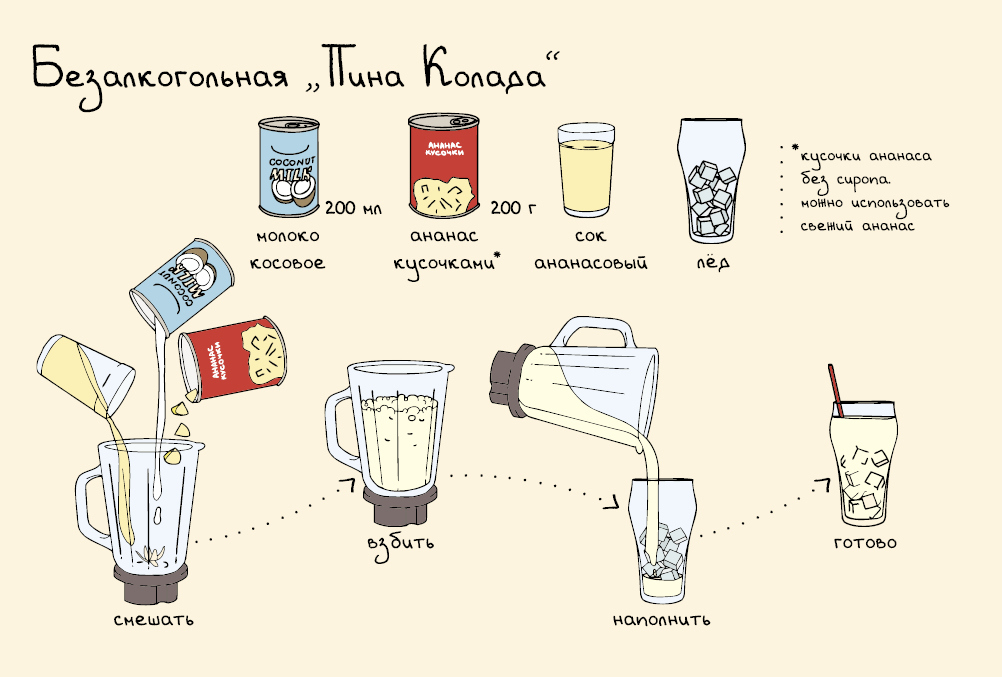 Безалкогольная „Пина Колада“
COCONUT
MILK
200 мл
молоко
косовое
АНАНАС
КУСОЧКИ
200 г
ананас
кусочками*
сок
ананасовый
лёд
*кусочки ананаса
без сиропа.
можно использовать
свежий ананас
COCONUT
MILK
АНАНАС
КУСОЧКИ
смешать
взбить
наполнить
готово